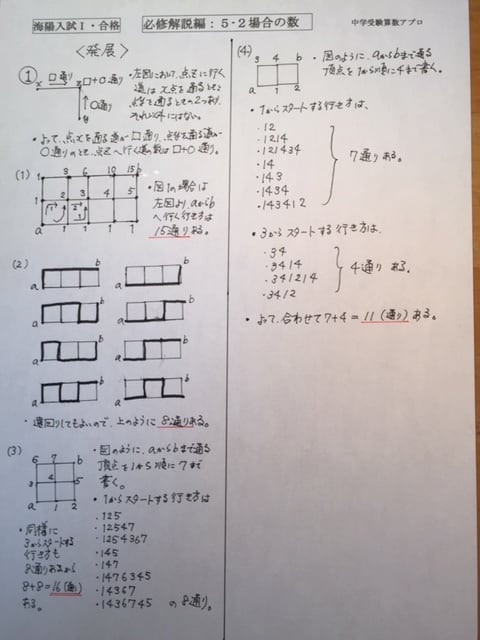 海陽入試Ⅰ・合格
必修解説編:5-2場合の数
中学受験算数アプロ
<発展>
①
x □通り z □+○通り
○通り
y
・左図において、点zに行く
道は x点を通るときと
点yを通るときの2つあり、
それ以外にはない。
・よって、点xを通る道が□通り、点yを通る道が
○通りのとき、点zへ行く道の数は□+○通り。
(1)
1 3 6 10 15 b
1 2 3 4 5
a 1 1 1 1
・図1の場合は
左図より、aからb
へ行く行き方は
15通りある。
(2)
a b a b
a b a b
a b a b
a b a b
・遠回りしてもよいので、上のように 8通りある。
(3)
6 7 b
3 4 5
a 1 2
・図のように、aからbまで通る
頂点を1から順に7まで
書く。
・1からスタートする行き方は
・125
・12547
・1254367
・145
・147
・1476345
・14367
・1436745 の8通り。
・同様に
3からスタートする
行き方も
8通りあるから
8+8=16(通り)
ある。
(4)
3 4 b
a 1 2
・図のように、aからbまで通る
頂点を1から順に4まで書く。
・1からスタートする行き方は、
・12
・1214
・121434
・14
・143
・1434
・143412
7通りある。
・3からスタートする行き方は、
・34
・3414
・341214
・3412
4通りある。
・よって、合わせて7+4=11(通り)ある。